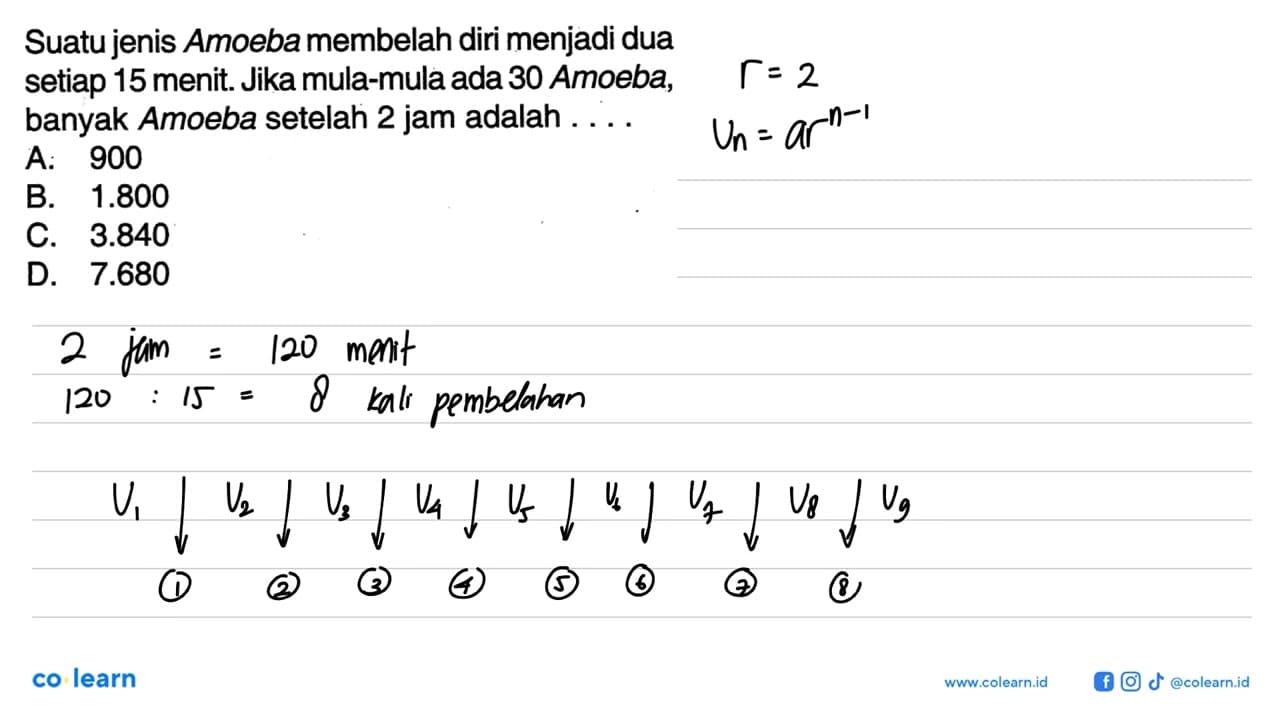 Suatu jenis Amoeba membelah diri menjadi dua
setiap 15 menit. Jika mula-mula ada 30 Amoeba,
banyak Amoeba setelah 2 jam adalah . . . .
A. 900
B. 1.800
C. 3.840
D. 7.680
r = 2
Un = ar^n-1
2 jam = 120 menit
120 : 15 = 8 kali pembelahan
U1 ↓ U2 ↓ U3 ↓ U4 ↓ U5 ↓ U6 ↓ U7 ↓ U8 ↓ U9
① ② ③ ④ ⑤ ⑥ ⑦ ⑧
co learn
www.colearn.id
@colearn.id